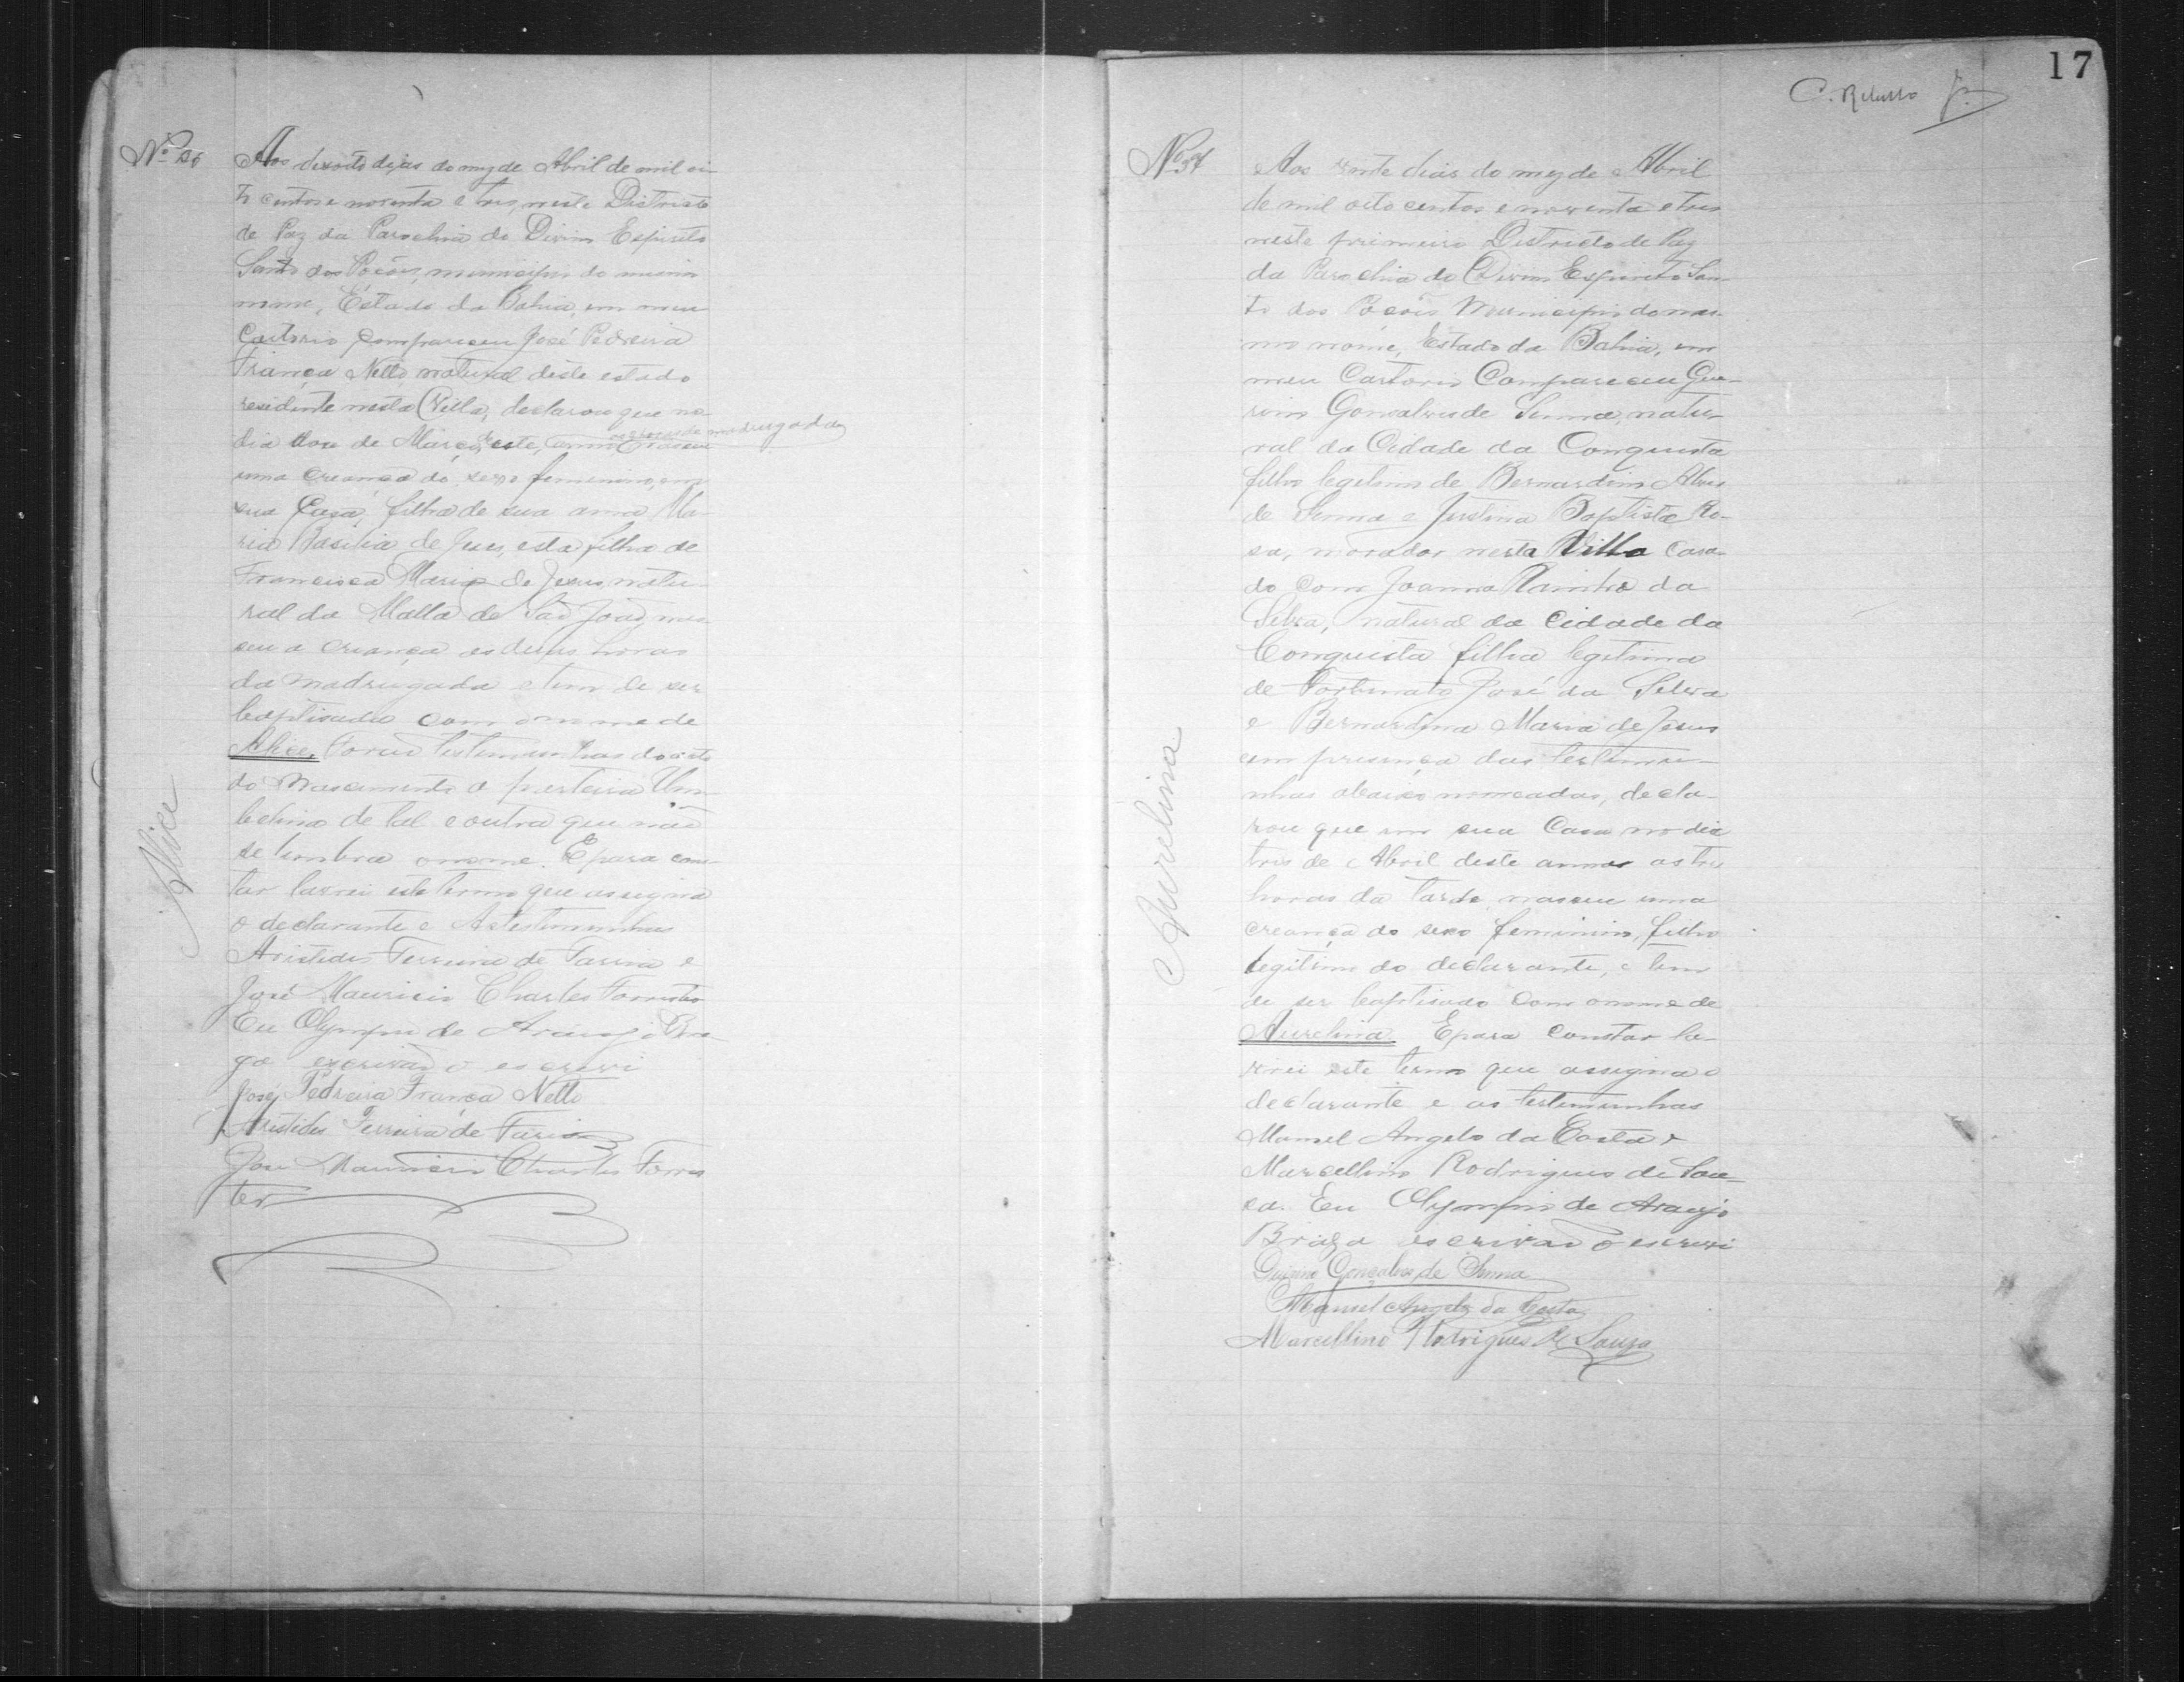 Nº 36
Aos desoito dias do mez de Abril de mil oi-
to centos e noventa e tres, neste Districto
de Paz da Parochia do Divino Espirito
Santo dos Poções, municipio do mesmo
nome, Estado da Bahia, em meu
Cartorio compareceu José Pedreira
França Netto, natural deste estado
residente nesta Villa, declarou que no
dia de Março deste, anno nasceu
madrugada
uma creança do sexo feminino, em
sua Casa, filha de sua ama Ma-
ria Basilia de Jesus, esta filha de
Francisca Maria de Jesus, natu-
ral da Matta de São João, nas-
ceu a creança as duas horas
da madrugada e tem de ser
baptisada com o nome de
Alice. Forão testemunhas do acto
do nascimento a parteira Um-
belina de tal e outra que não
se lembra o nome. E para cons-
tar lavrei este termo que assigna
o declarante e As testemunhas
Aristides Ferreira de Faria e
José Mauricio Charles Forrester
Eu Olympio de Araujo Bra-
ga escrivão o escrevi
José Pedreira França Netto
Aristides Ferreira de Faria
José Mauricio Charles Forres
ter
Alice
17
Nº 37
Aos vinte dias do mez de Abril
de mil oito centos e noventa e tres
neste primeiro Districto de Paz
da Parochia do Divino Espirito San-
to dos Poções Municipio do mes-
mo nome, Estado da Bahia, em
meu Cartorio Compareceu Gue-
rino Gonsalves de Senna, natu-
ral da Cidade da Conquista
filho legitimo de Bernardino Alves
de Senna e Justina Baptista Ro-
sa, morador nesta Villa Casa-
do com Joanna Rainha da
Silva, natural da Cidade da
Conquista filha legitima
de Fortunato José da Silva
e Bernardina Maria de Jesus
em presença das testemu-
nhas abaixo nomeadas, decla-
rou que em sua Casa no dia
tres de Abril deste anno as tres
horas da tarde, nasceu uma
creança do sexo feminino, filho
legitimo do declarante, e tem
de ser baptisado com o nome de
Aurelina. E para constar la-
vrei este termo que assigna o
declarante e as testemunhas
Manoel Angelo da Costa e
Marcellino Rodrigues de Sou-
sa. Eu Olympio de Araujo
Braga escrivão o escrevi
Guirino Gonçalves de Senna
Manoel Angelo da Costa
Marcellino Rodrigues de Souza
Aurelina